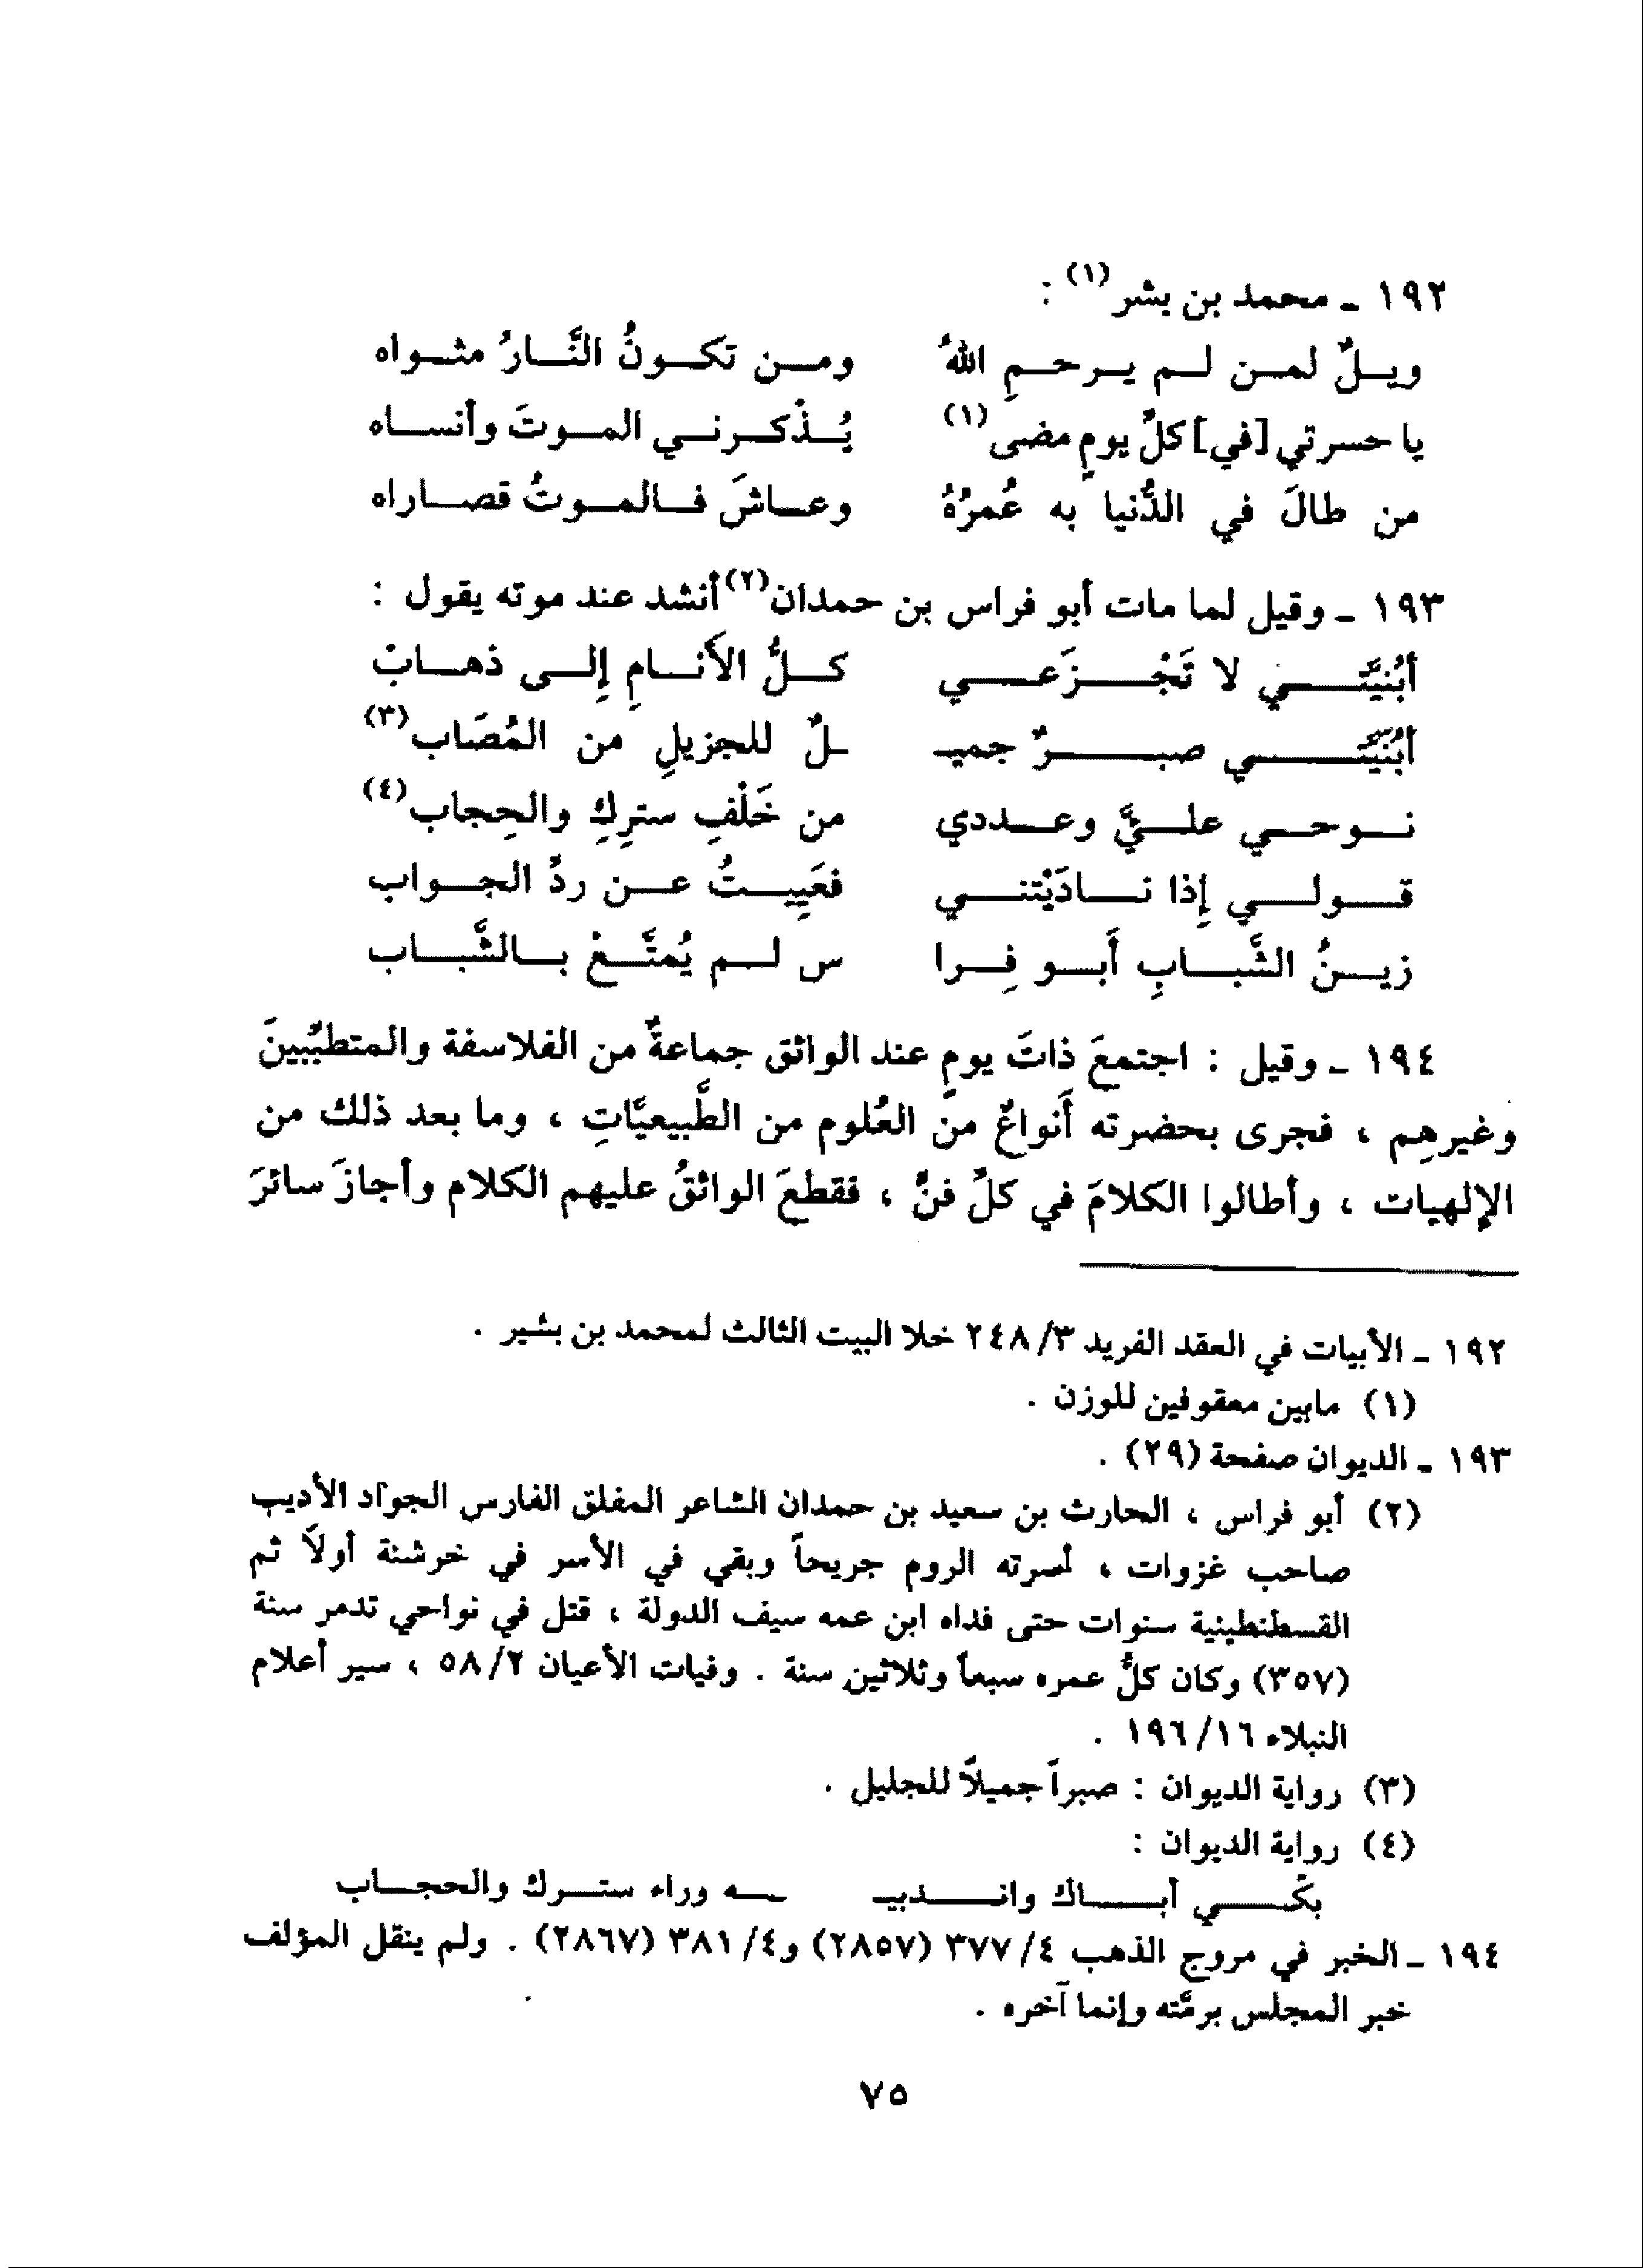 ١٩٢ ـ محمد بن بشر(١) :
ويلٌ لمن لم يرحمِ اللهُ ومن تكونُ النَّارُ مثواه
يا حسرتي [في] كلِّ يومٍ مضى(١) يُذْكرني الموتَ وأنساه
من طالَ في الدُّنيا به عُمرُهُ وعاشَ فالموتُ قصاراه
١٩٣ ـ وقيل لما مات أبو فراس بن حمدان(٢) أنشد عند موته يقول :
أبُنيَّتي لا تَجْزَعي كلُّ الأَنامِ إِلى ذهابْ
أبُنَيَّتي صبرٌ جميـ ـلٌ للجزيلِ من المُصَاب(٣)
نوحي عليَّ وعددي من خَلْفِ سترِكِ والحِجاب(٤)
قولي إِذا نادَيْتني فعَيِيتُ عن ردِّ الجواب
زينُ الشَّبابِ أَبو فِرا س لم يُمتَّعْ بالشَّباب
١٩٤ ـ وقيل : اجتمعَ ذاتَ يومٍ عند الواثق جماعةٌ من الفلاسفة والمتطبِّبينَ
وغيرهِم ، فجرى بحضرته أَنواعٌ من العُلوم من الطَّبيعيَّاتِ ، وما بعد ذلك من
الإلهيات ، وأطالوا الكلامَ في كلِّ فنٍّ ، فقطعَ الواثقُ عليهم الكلام وأجازَ سائرَ
١٩٢ ـ الأبيات في العقد الفريد ٢٤٨/٣ خلا البيت الثالث لمحمد بن بشير .
(١) مابين معقوفين للوزن .
١٩٣ ـ الديوان صفحة (٢٩) .
(٢) أبو فراس ، الحارث بن سعيد بن حمدان الشاعر المفلق الفارس الجواد الأديب
صاحب غزوات ، أسرته الروم جريحاً وبقي في الأسر في خرشنة أولاً ثم
القسطنطينية سنوات حتى فداه ابن عمه سيف الدولة ، قتل في نواحي تدمر سنة
(٣٥٧) وكان كلُّ عمره سبعاً وثلاثين سنة . وفيات الأعيان ٥٨/٢ ، سير أعلام
النبلاء ١٩٦/١٦ .
(٣) رواية الديوان : صبراً جميلاً للجليل .
(٤) رواية الديوان :
بكّي أباك واندبيـ ـه وراء سترك والحجاب
١٩٤ ـ الخبر في مروج الذهب ٣٧٧/٤ (٢٨٥٧) و٣٨١/٤ (٢٨٦٧) . ولم ينقل المؤلف
خبر المجلس برمَّته وإنما آخره .
٧٥